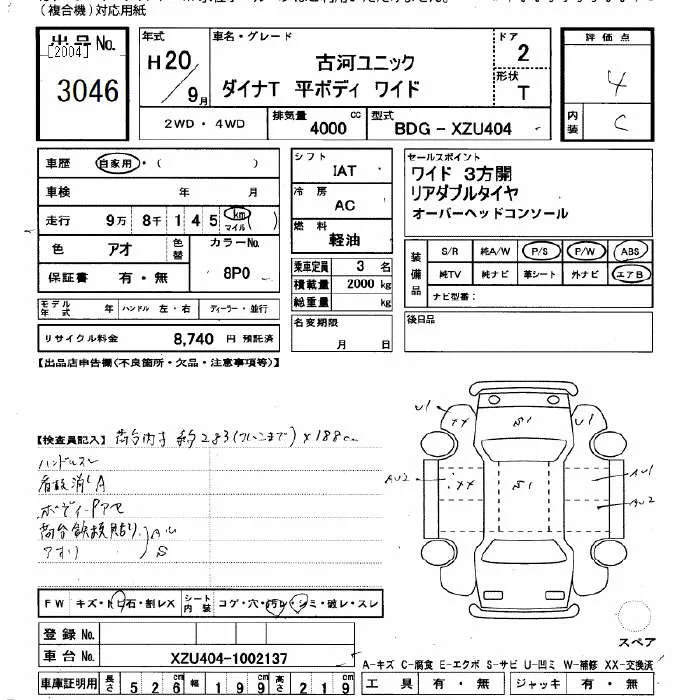 (複合機)対応用紙
出品No.
[2004]
3046
年式
H20
9月
車名・グレード
古河ユニック
ダイナT 平ボディ ワイド
ドア
2
形状
T
評価点
4
内装
C
2WD・4WD
排気量 4000 cc
型式 BDG-XZU404
車歴 自家用・( )
車検 年 月
走行 9万 8千 1 4 5 km マイル ( )
色 アオ 色替 カラーNo. 8P0
保証書 有・無
モデル年式 年 ハンドル 左・右 ディーラー・並行
リサイクル料金 8,740 円 預託済
シフト
IAT
冷房
AC
燃料
軽油
乗車定員 3 名
積載量 2000 kg
総重量 kg
名変期限
月 日
セールスポイント
ワイド 3方開
リアダブルタイヤ
オーバーヘッドコンソール
装備品
S/R 純A/W P/S P/W ABS
純TV 純ナビ 革シート 外ナビ エアB
ナビ型番:
後日品
【出品店申告欄(不良箇所・欠品・注意事項等)】
【検査員記入】 荷台内寸 約283 ×188
ハンドルスレ
看板消しA
S
U1 XX S1 U1
AU2 XX S1 AU1
AU2
FW キズ・トビ石・割レX シート内装 コゲ・穴・汚レ・シミ・破レ・スレ
登録No.
車台No. XZU404-1002137
車庫証明用 長さ 526 cm 幅 199 cm 高さ 219 cm
スペア
A-キズ C-腐食 E-エクボ S-サビ U-凹ミ W-補修 XX-交換済
工具 有・無 ジャッキ 有・無